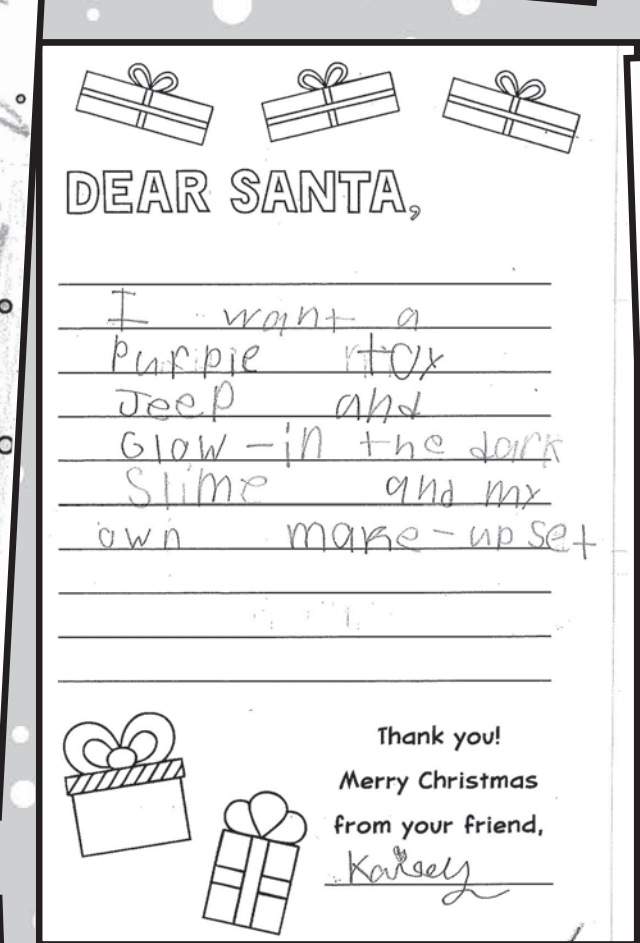 DEAR SANTA,
I want a
Purple toy
Jeep and
Glow-in the dark
Slime and my
own make-up set
Thank you!
Merry Christmas
from your friend,